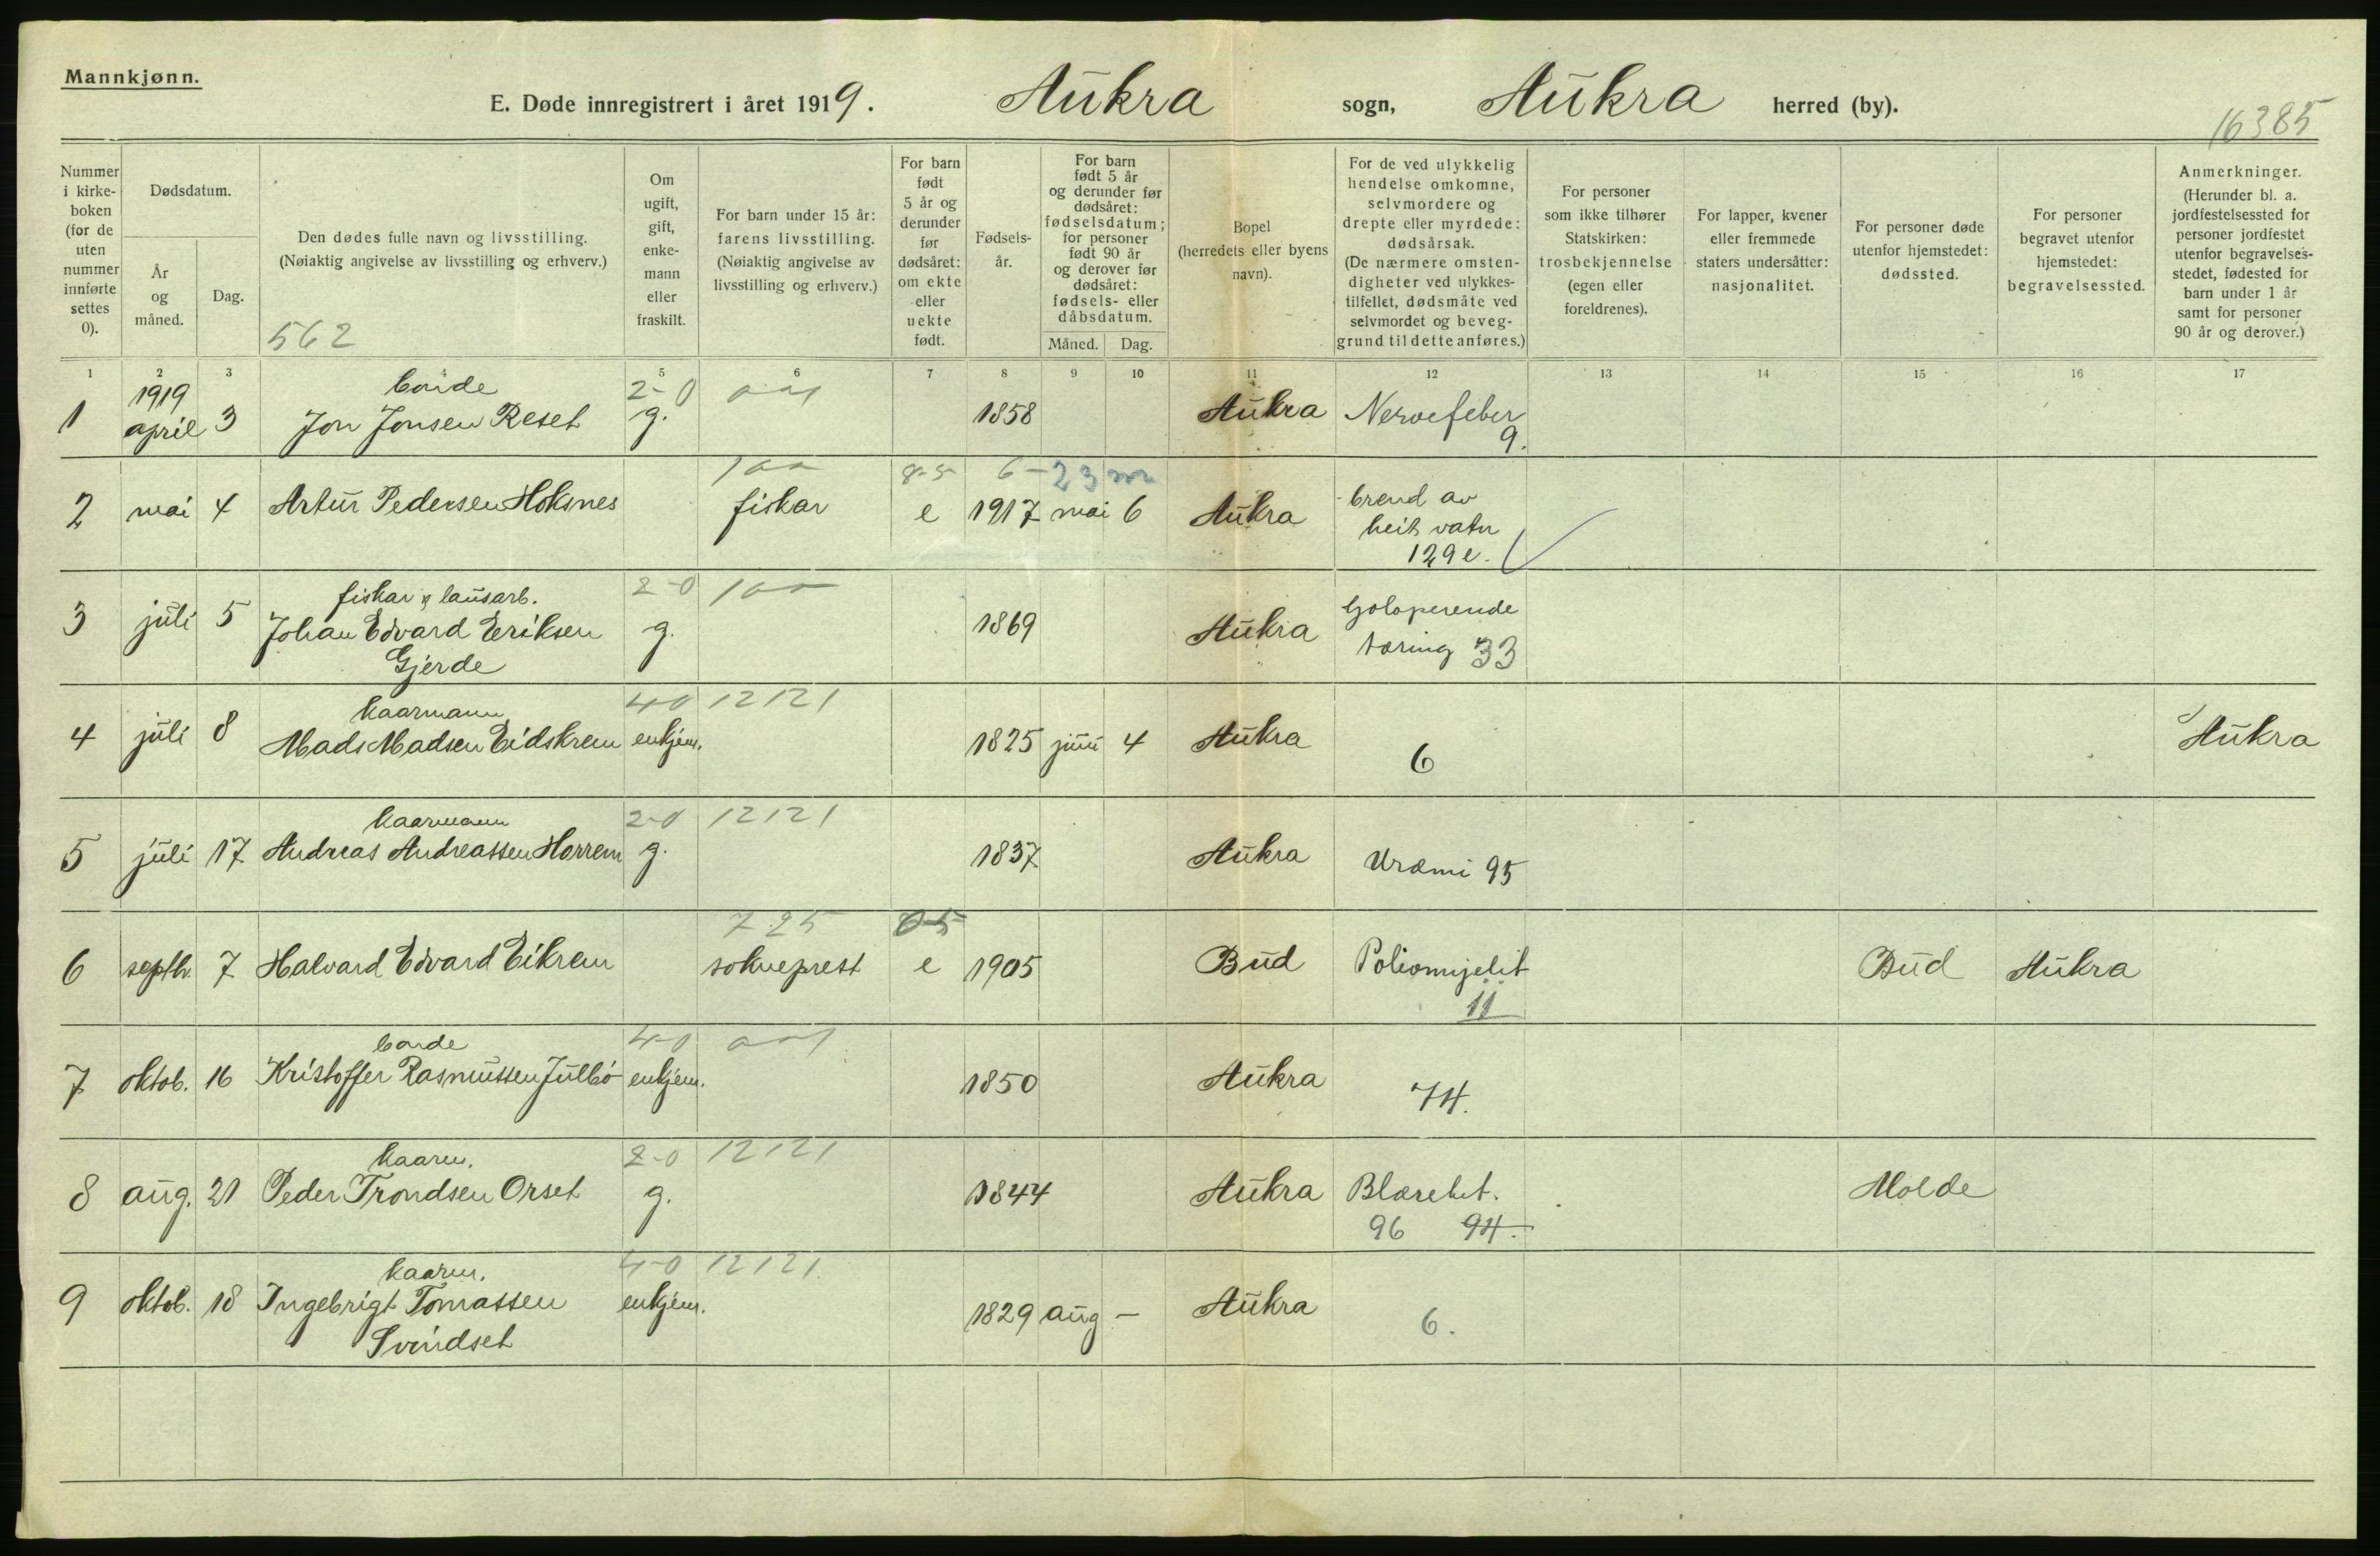 Mannkjønn.
E. Døde innregistrert i året 1919. Aukra sogn, Aukra herred (by).
16385
Nummer i kirke-boken (for de uten nummer innførte settes 0).
Dødsdatum.
År og måned.
Dag.
Den dødes fulle navn og livsstilling.
(Nøiaktig angivelse av livsstilling og erhverv.)
562
Om ugift, gift, enke-mann eller fraskilt.
For barn under 15 år: farens livsstilling.
(Nøiaktig angivelse av livsstilling og erhverv.)
For barn født 5 år og derunder før dødsåret: om ekte eller uekte født.
Fødsels-år.
For barn født 5 år og derunder før dødsåret: fødselsdatum; for personer født 90 år og derover før dødsåret: fødsels- eller dåbsdatum.
Måned. Dag.
Bopel (herredets eller byens navn).
For de ved ulykkelig hendelse omkomne, selvmordere og drepte eller myrdede: dødsårsak.
(De nærmere omsten-digheter ved ulykkes-tilfellet, dødsmåte ved selvmordet og beveg-grund til dette anføres.)
For personer som ikke tilhører Statskirken: trosbekjennelse (egen eller foreldrenes).
For lapper, kvener eller fremmede staters undersåtter: nasjonalitet.
For personer døde utenfor hjemstedet: dødssted.
For personer begravet utenfor hjemstedet: begravelsessted.
Anmerkninger.
(Herunder bl. a. jordfestelsessted for personer jordfestet utenfor begravelses-stedet, fødested for barn under 1 år samt for personer 90 år og derover.)
1 2 3 4 5 6 7 8 9 10 11 12 13 14 15 16 17
1919 bonde 2-0
1 april 3 Jon Jonsen Reset g. 1858 Aukra Nervefeber
9.
100 8-5 6-23 m
2 mai 4 Artur Pedersen Hoksnes fiskar e 1917 mai 6 Aukra brend av
heit vatn
129e.
fiskar & lausarb. 2-0 100
3 juli 5 Johan Edvard Eriksen Gjerde g. 1869 Aukra Galoperende
tæring 33
kaarmann 4-0 12121
4 juli 8 Mads Madsen Eidskrem enkjem. 1825 juni 4 Aukra 6 Aukra
kaarmann 2-0 12121
5 juli 17 Andreas Andreassen Horrem g. 1837 Aukra Uræmi 95
725 0-5
6 septbr. 7 Halvard Edvard Eikrem sokneprest e 1905 Bud Poliomyelit Bud Aukra
11
bonde 4-0
7 oktob. 16 Kristoffer Rasmussen Julbø enkjem. 1850 Aukra 74.
kaarm. 2-0 12121
8 aug. 21 Peder Trondsen Orset g. 1844 Aukra Blæreket. Molde
96 94.
kaarm. 4-0 12121
9 oktob. 18 Ingebrigt Tomassen enkjem. 1829 aug - Aukra 6.
Svindset